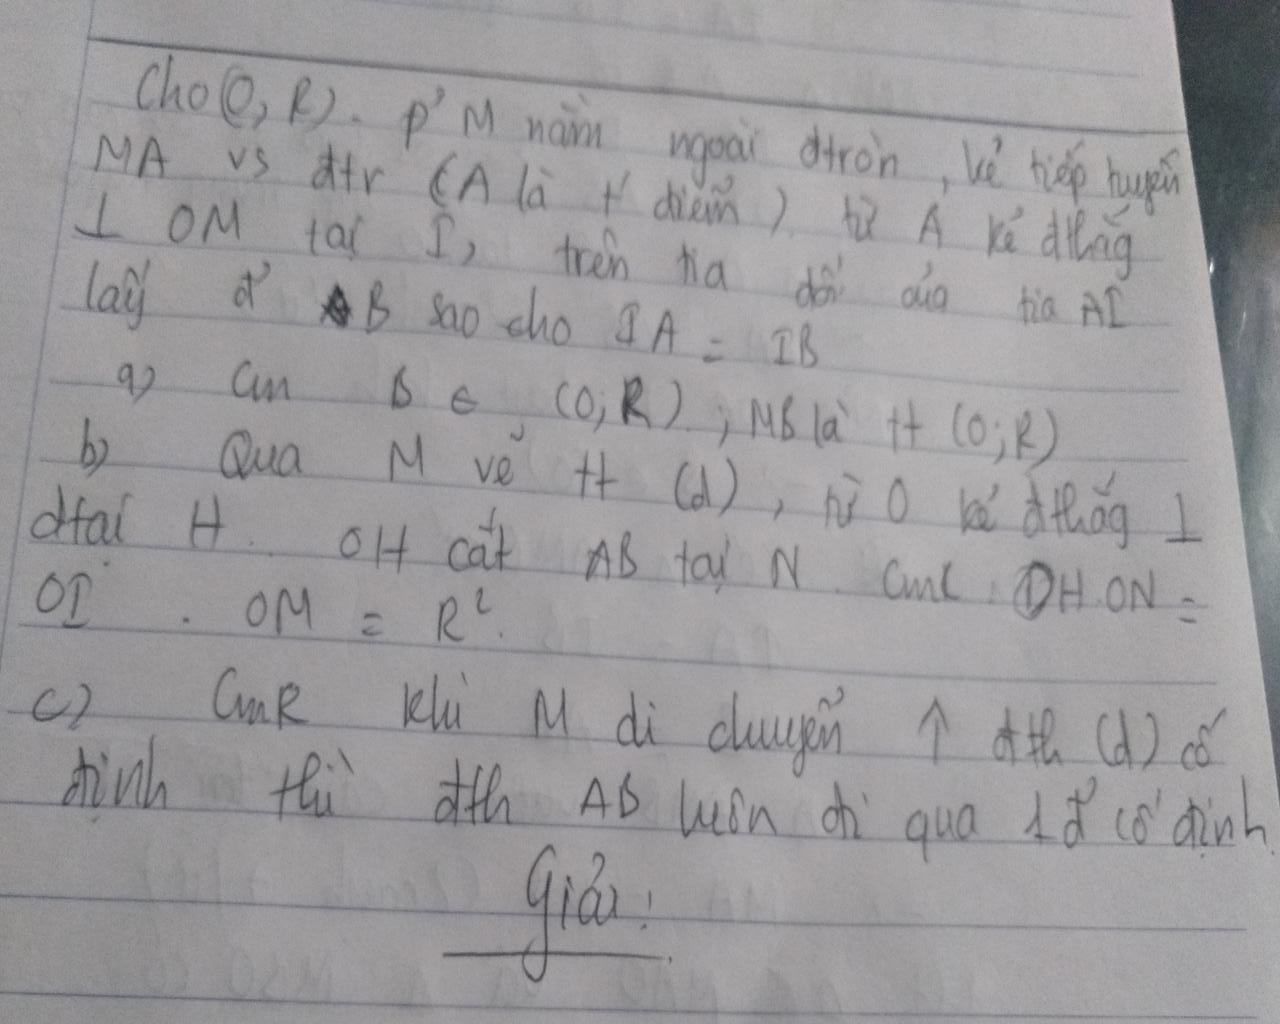 Cho (O, R). p' M nằm ngoài đtròn, kẻ tiếp tuyến
MA vs đtr (A là t' điểm). từ A kẻ đthẳg
⊥ OM tại I, trên tia đối của tia AI
lấy đ' B sao cho IA = IB
a) Cm B ∈ (O; R), MB là tt (O; R)
b) Qua M vẽ tt (d), từ O kẻ đthẳg ⊥
d tại H. OH cắt AB tại N. Cmc OH.ON =
OI . OM = R².
c) CmR khi M di chuyển ↑ đth (d) cố
định thì đth AB luôn đi qua 1 đ' cố định.
Giải: